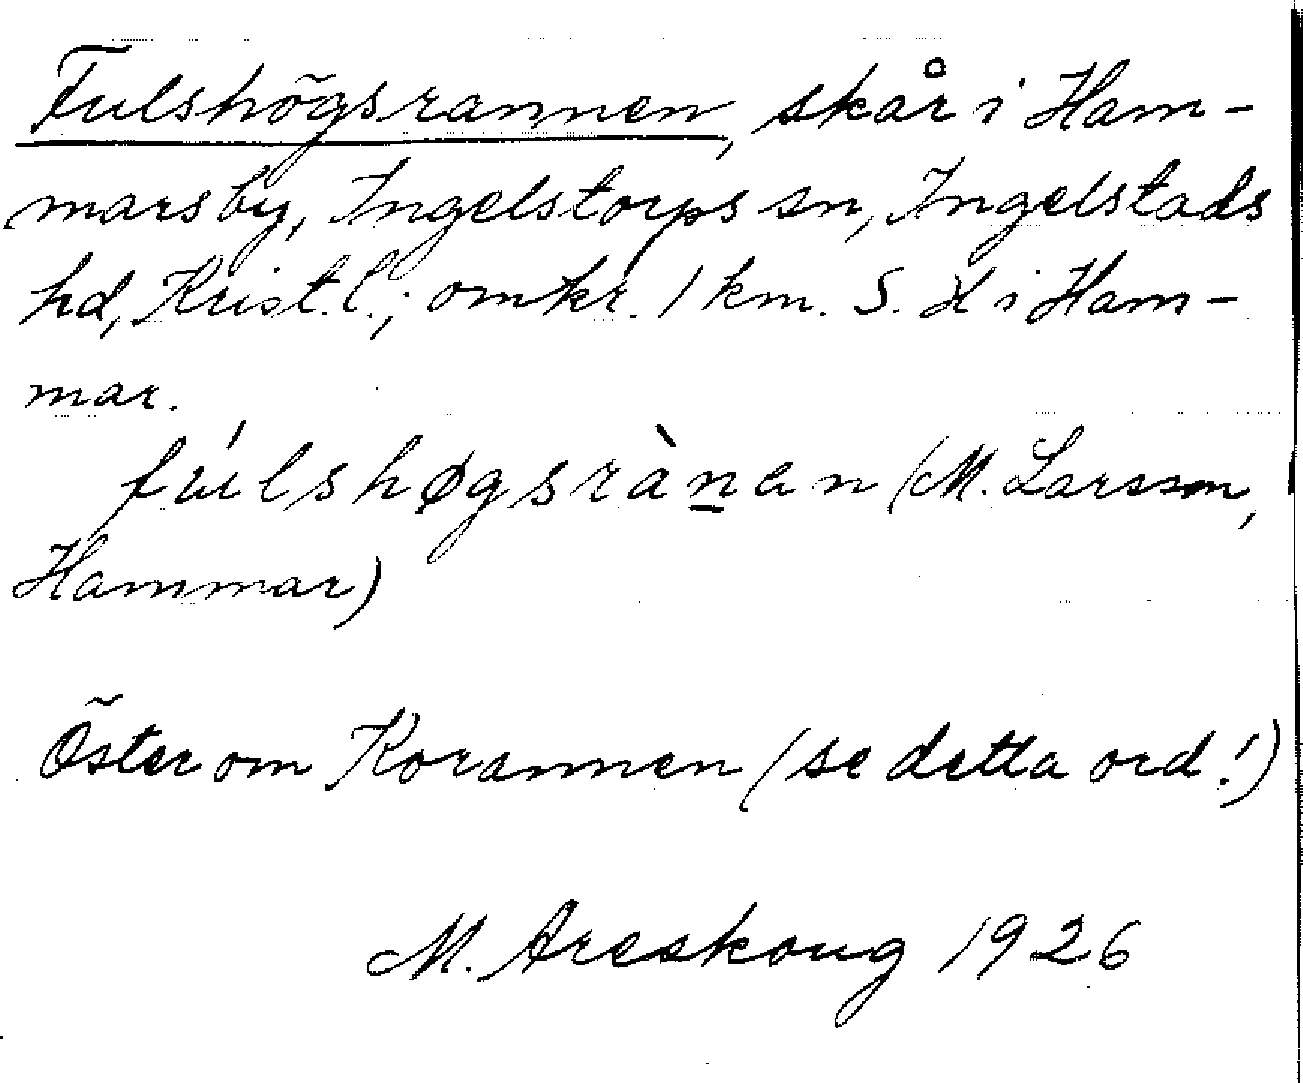 Fulshögsrannen, skår i Ham-
mars by, Ingelstorps sn, Ingelstads
hd, Krist. l.; omkr. 1 km. S. X i Ham-
mar.
fúlshøgsràn̲en (M. Larsson,
Hammar)
Öster om Korannen (se detta ord!)
M. Areskoug 1926